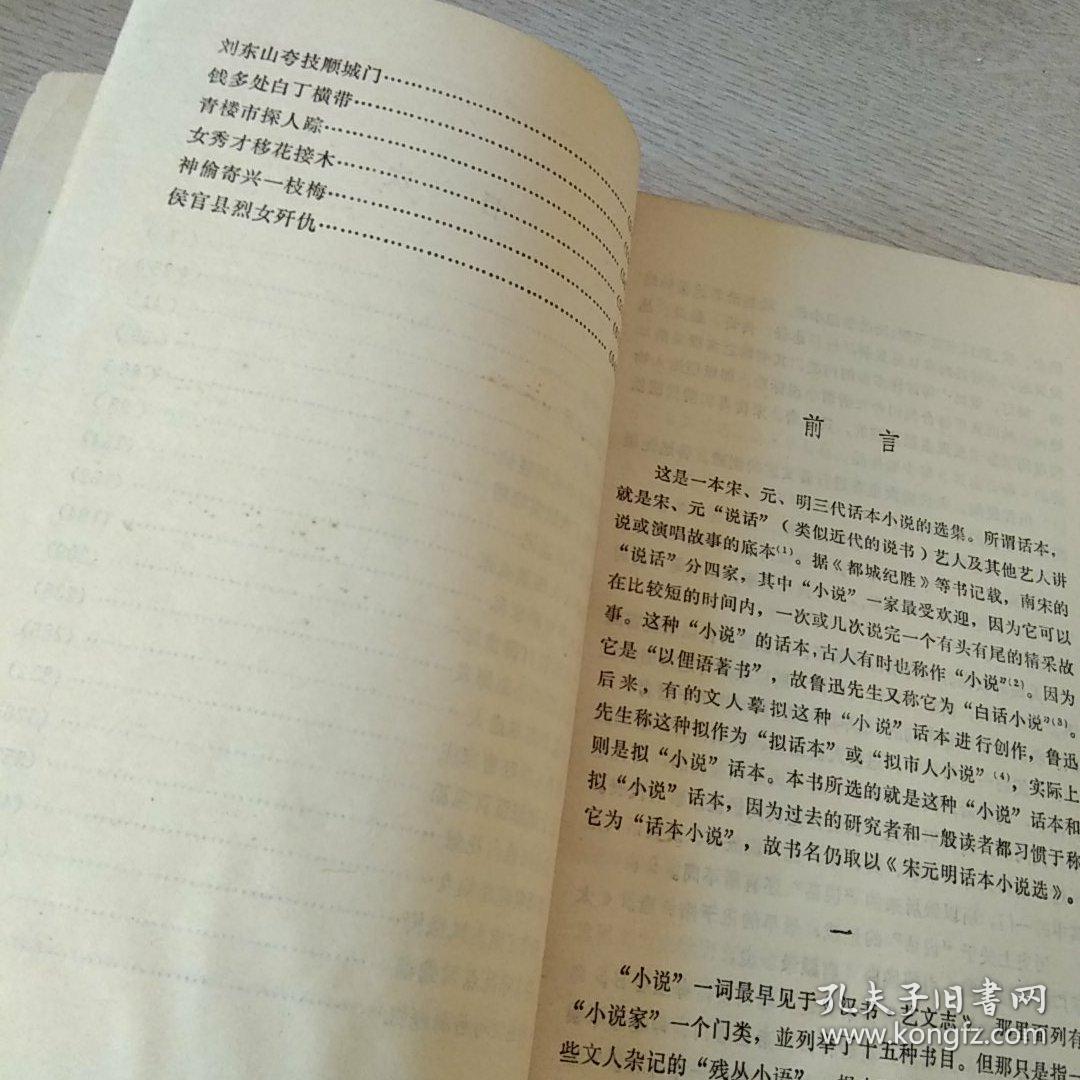 刘东山夸技顺城门
钱多处白丁横带
青楼市探人踪
女秀才移花接木
神偷寄兴一枝梅
侯官县烈女歼仇
前言
这是一本宋、元、明三代话本小说的选集。所谓话本，
就是宋、元“说话”（类似近代的说书）艺人及其他艺人讲
说或演唱故事的底本⁽¹⁾。据《都城纪胜》等书记载，南宋的
“说话”分四家，其中“小说”一家最受欢迎，因为它可以
在比较短的时间内，一次或几次说完一个有头有尾的精采故
事。这种“小说”的话本，古人有时也称作“小说”⁽²⁾。因为
它是“以俚语著书”，故鲁迅先生又称它为“白话小说”⁽³⁾。
后来，有的文人摹拟这种“小说”话本进行创作，鲁迅
先生称这种拟作为“拟话本”或“拟市人小说”⁽⁴⁾，实际上
则是拟“小说”话本。本书所选的就是这种“小说”话本和
拟“小说”话本，因为过去的研究者和一般读者都习惯于称
它为“话本小说”，故书名仍取以《宋元明话本小说选》。
一
“小说”一词最早见于《汉书·艺文志》，那里面列有
“小说家”一个门类，並列举了十五种书目。但那只是指一
些文人杂记的“残丛小语”
孔夫子旧书网
www.kongfz.com